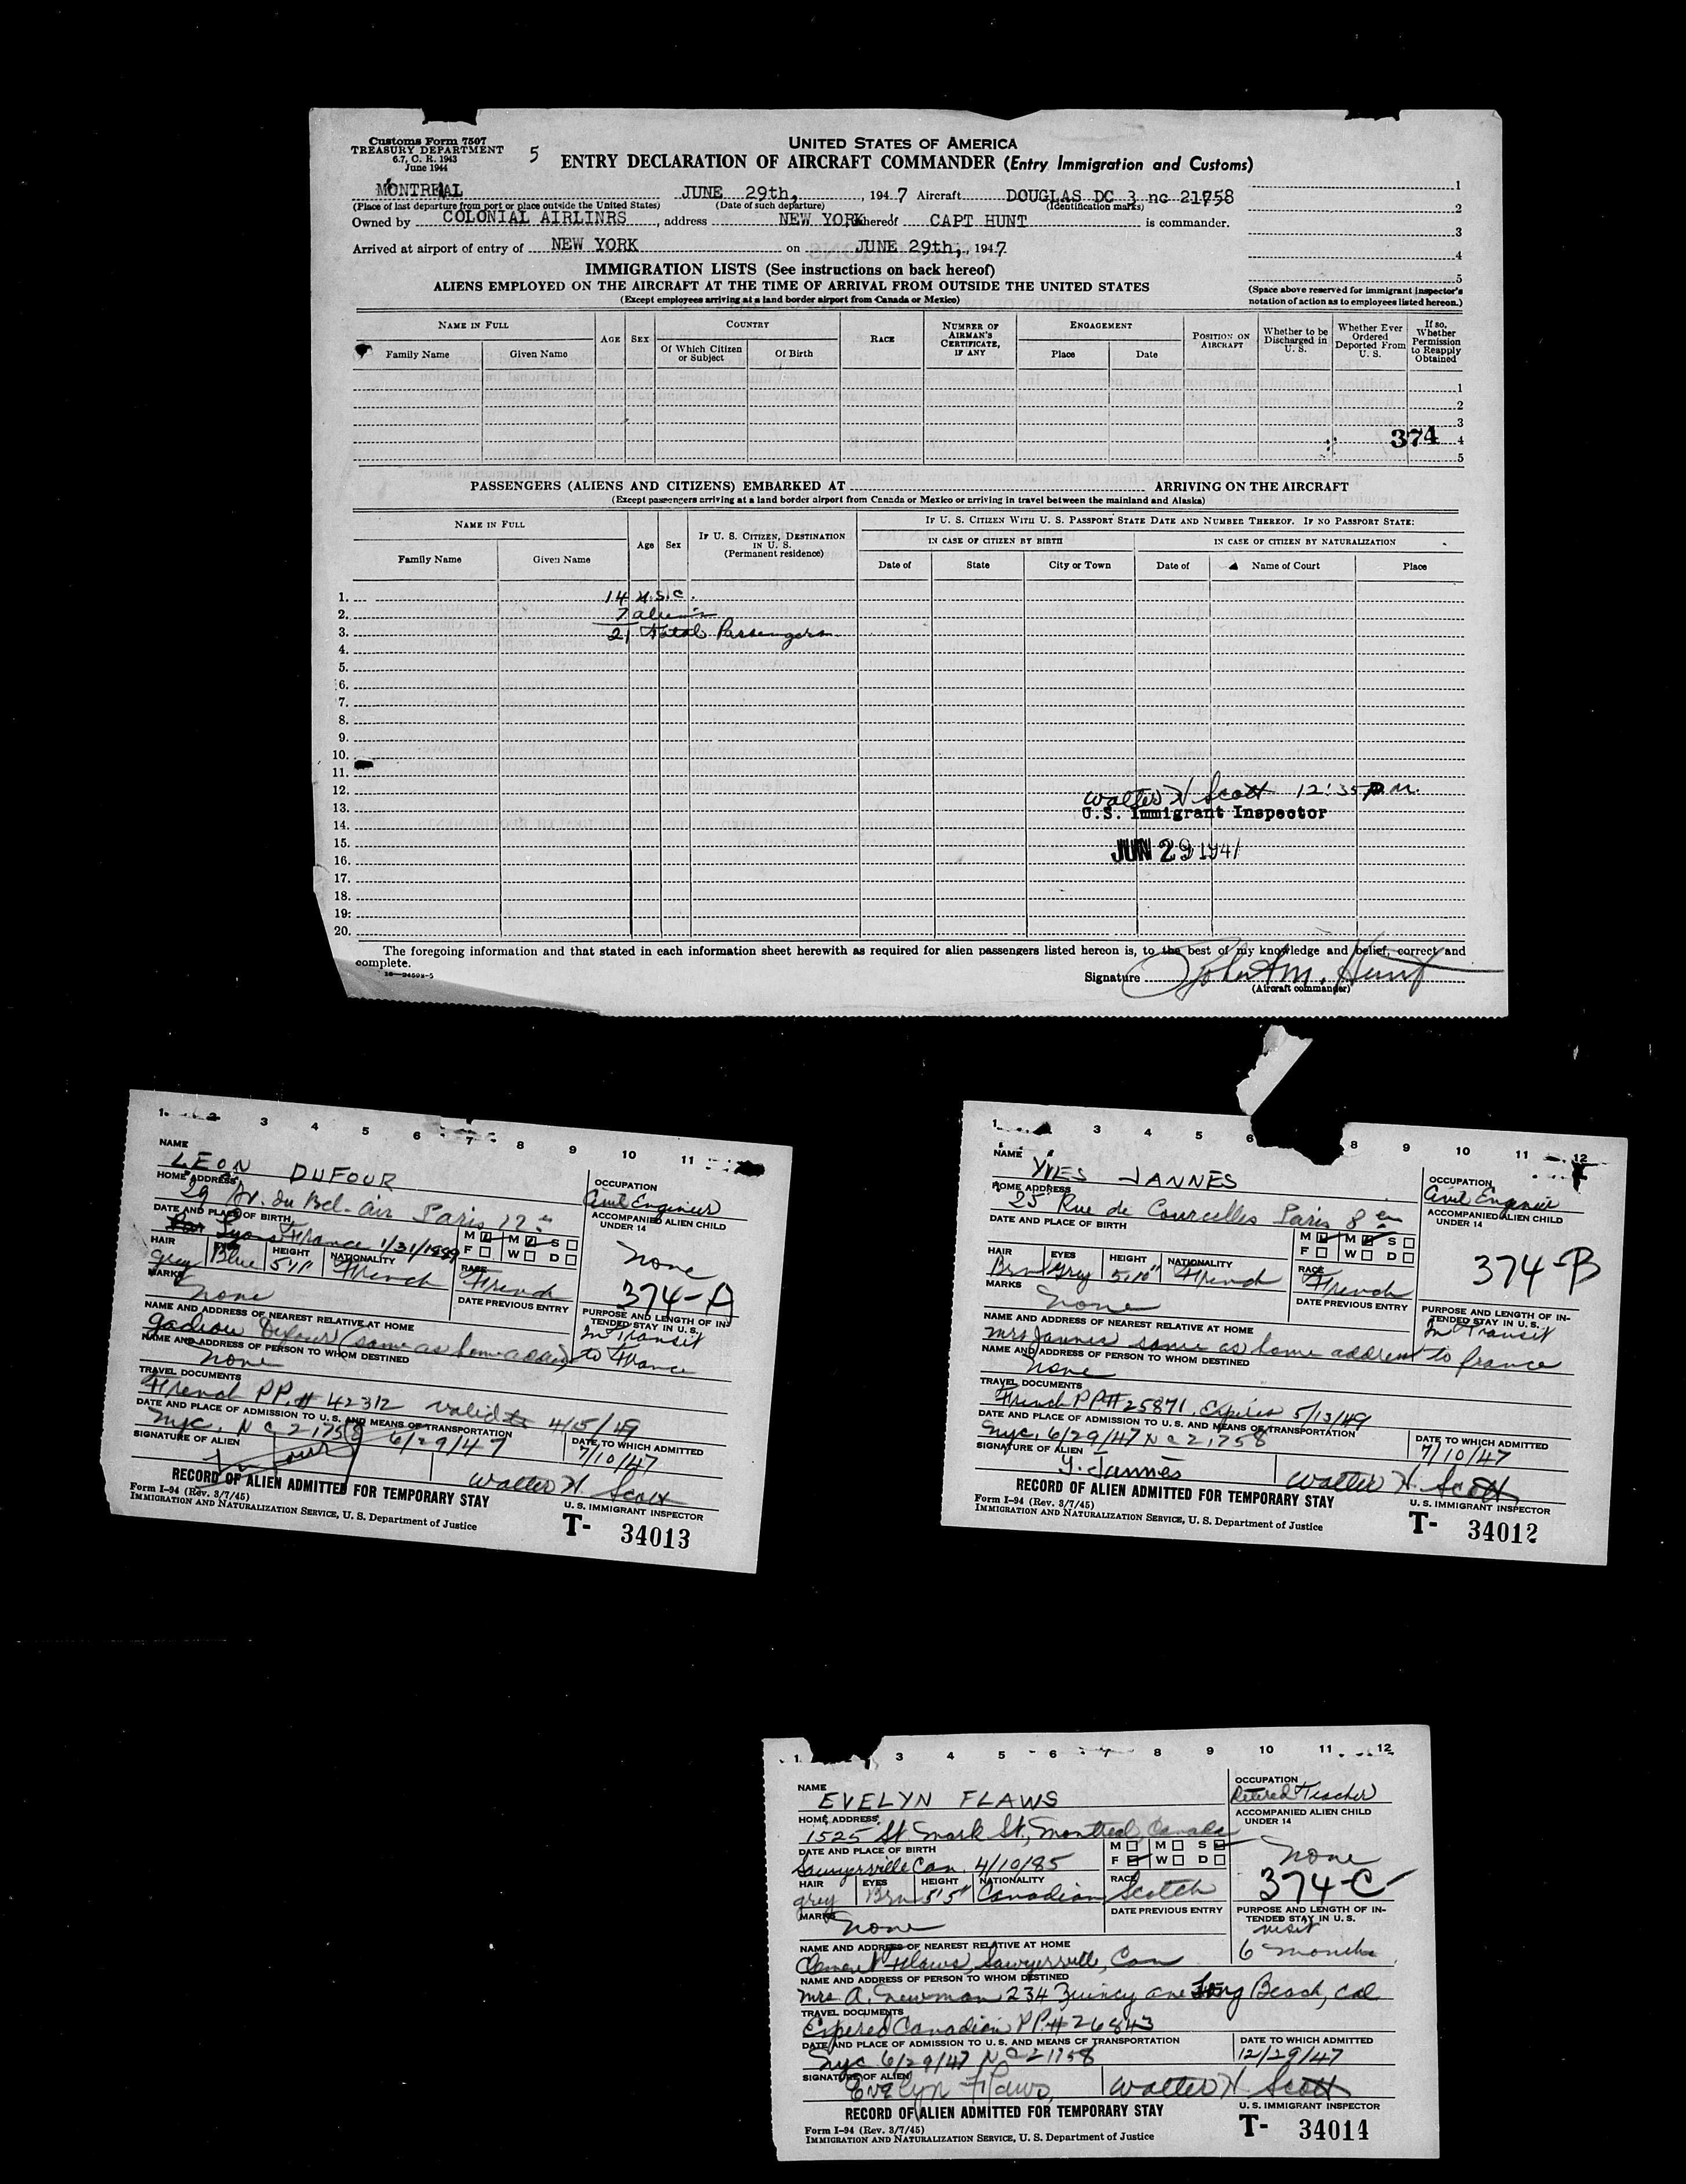 Customs Form 7507
TREASURY DEPARTMENT
6.7, C. R. 1943
June 1944
5
UNITED STATES OF AMERICA
ENTRY DECLARATION OF AIRCRAFT COMMANDER (Entry Immigration and Customs)
MONTREAL JUNE 29th, , 1947 Aircraft DOUGLAS DC 3 nc 21758
(Place of last departure from port or place outside the United States) (Date of such departure) (Identification marks)
Owned by COLONIAL AIRLINRS , address NEW YORK thereof CAPT HUNT is commander.
Arrived at airport of entry of NEW YORK on JUNE 29th, , 1947
1
2
3
4
5
(Space above reserved for immigrant inspector's
notation of action as to employees listed hereon.)
IMMIGRATION LISTS (See instructions on back hereof)
ALIENS EMPLOYED ON THE AIRCRAFT AT THE TIME OF ARRIVAL FROM OUTSIDE THE UNITED STATES
(Except employees arriving at a land border airport from Canada or Mexico)
NAME IN FULL
Family Name Given Name
AGE SEX
COUNTRY
Of Which Citizen or Subject Of Birth
RACE
NUMBER OF AIRMAN'S CERTIFICATE, IF ANY
ENGAGEMENT
Place Date
POSITION ON AIRCRAFT
Whether to be Discharged in U. S.
Whether Ever Ordered Deported From U. S.
If so, Whether Permission to Reapply Obtained
1
2
3
374 4
5
PASSENGERS (ALIENS AND CITIZENS) EMBARKED AT ARRIVING ON THE AIRCRAFT
(Except passengers arriving at a land border airport from Canada or Mexico or arriving in travel between the mainland and Alaska)
NAME IN FULL
Family Name Given Name
Age Sex
IF U. S. CITIZEN, DESTINATION IN U. S. (Permanent residence)
IF U. S. CITIZEN WITH U. S. PASSPORT STATE DATE AND NUMBER THEREOF. IF NO PASSPORT STATE:
IN CASE OF CITIZEN BY BIRTH IN CASE OF CITIZEN BY NATURALIZATION
Date of State City or Town Date of Name of Court Place
1. 14 U.S.C.
2. 7 aliens
3. 21 Total Passengers
4.
5.
6.
7.
8.
9.
10.
11.
12. Walter H Scott 12:35 P.M.
13. U.S. Immigrant Inspector
14.
15. JUN 29 1947
16.
17.
18.
19.
20.
The foregoing information and that stated in each information sheet herewith as required for alien passengers listed hereon is, to the best of my knowledge and belief, correct and
complete.
16—34598-5
Signature John M. Hunt
(Aircraft commander)
1 2 3 4 5 6 7 8 9 10 11
NAME
LEON DUFOUR
HOME ADDRESS
29 Av. du Bel-air Paris 12 e
DATE AND PLACE OF BIRTH
Lyons France 1/31/1889
M M S
F W D
HAIR EYES HEIGHT NATIONALITY RACE
grey Blue 5'11" French French
MARKS
none
DATE PREVIOUS ENTRY
OCCUPATION
Civil Engineer
ACCOMPANIED ALIEN CHILD
UNDER 14
none
374-A
PURPOSE AND LENGTH OF IN-
TENDED STAY IN U. S.
In Transit
to France
NAME AND ADDRESS OF NEAREST RELATIVE AT HOME
Dufour (same as home address)
NAME AND ADDRESS OF PERSON TO WHOM DESTINED
none
TRAVEL DOCUMENTS
French PP. # 42312 valid to 4/15/49
DATE AND PLACE OF ADMISSION TO U. S. AND MEANS OF TRANSPORTATION
nyc, N C 21758 6/29/47
DATE TO WHICH ADMITTED
7/10/47
SIGNATURE OF ALIEN
Walter H. Scott
RECORD OF ALIEN ADMITTED FOR TEMPORARY STAY
U. S. IMMIGRANT INSPECTOR
Form I-94 (Rev. 3/7/45)
IMMIGRATION AND NATURALIZATION SERVICE, U. S. Department of Justice
T- 34013
1 3 4 5 6 8 9 10 11 12
NAME
YVES JANNÈS
HOME ADDRESS
25 Rue de Courcelles Paris 8 em
DATE AND PLACE OF BIRTH
M M S
F W D
HAIR EYES HEIGHT NATIONALITY RACE
Brn Grey 5'10" French French
MARKS
none
DATE PREVIOUS ENTRY
OCCUPATION
Civil Engineer
ACCOMPANIED ALIEN CHILD
UNDER 14
374-B
PURPOSE AND LENGTH OF IN-
TENDED STAY IN U. S.
In Transit
to france
NAME AND ADDRESS OF NEAREST RELATIVE AT HOME
Mrs Jannes same as home address
NAME AND ADDRESS OF PERSON TO WHOM DESTINED
none
TRAVEL DOCUMENTS
French PP# 25871. Expires 5/13/49
DATE AND PLACE OF ADMISSION TO U. S. AND MEANS OF TRANSPORTATION
nyc, 6/29/47 N C 21758
DATE TO WHICH ADMITTED
7/10/47
SIGNATURE OF ALIEN
Y. Jannès Walter H. Scott
RECORD OF ALIEN ADMITTED FOR TEMPORARY STAY
U. S. IMMIGRANT INSPECTOR
Form I-94 (Rev. 3/7/45)
IMMIGRATION AND NATURALIZATION SERVICE, U. S. Department of Justice
T- 34012
1 3 4 5 6 7 8 9 10 11 12
NAME
EVELYN FLAWS
HOME ADDRESS
1525 St. Mark St, Montreal, Canada
DATE AND PLACE OF BIRTH
Sawyersville Can. 4/10/85
M M S
F W D
HAIR EYES HEIGHT NATIONALITY RACE
grey Brn 5'5" Canadian Scotch
MARKS
none
DATE PREVIOUS ENTRY
OCCUPATION
Retired Teacher
ACCOMPANIED ALIEN CHILD
UNDER 14
none
374-C
PURPOSE AND LENGTH OF IN-
TENDED STAY IN U. S.
visit
6 months
NAME AND ADDRESS OF NEAREST RELATIVE AT HOME
Clement Flaws, Sawyersville, Can
NAME AND ADDRESS OF PERSON TO WHOM DESTINED
Mrs A. Newman 234 Quincy ave Long Beach, Cal
TRAVEL DOCUMENTS
Expired Canadian PP.# 26843
DATE AND PLACE OF ADMISSION TO U. S. AND MEANS OF TRANSPORTATION
nyc 6/29/47 N C 21758
DATE TO WHICH ADMITTED
12/29/47
SIGNATURE OF ALIEN
Evelyn Flaws Walter H. Scott
RECORD OF ALIEN ADMITTED FOR TEMPORARY STAY
U. S. IMMIGRANT INSPECTOR
Form I-94 (Rev. 3/7/45)
IMMIGRATION AND NATURALIZATION SERVICE, U. S. Department of Justice
T- 34014